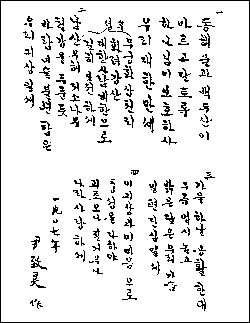 一
동해물과 백두산이
마르고 달토록
하나님이 보호하사
우리 대한만세
후렴
무궁화 삼천리
화려강산
대한사람 대한으로
길이 보전하세
二
남산우헤 저 소나무
철갑을 두른듯
바람 이슬 불변함은
우리 긔상일세
三
가을하날 공활한대
구름업시 놉고
밝은달은 우리 가슴
일편단심일세
四
이 긔상과 이 마음으로
충성을 다하야
괴로오나 질거우나
나라사랑하세
一九○七年
尹致昊 作